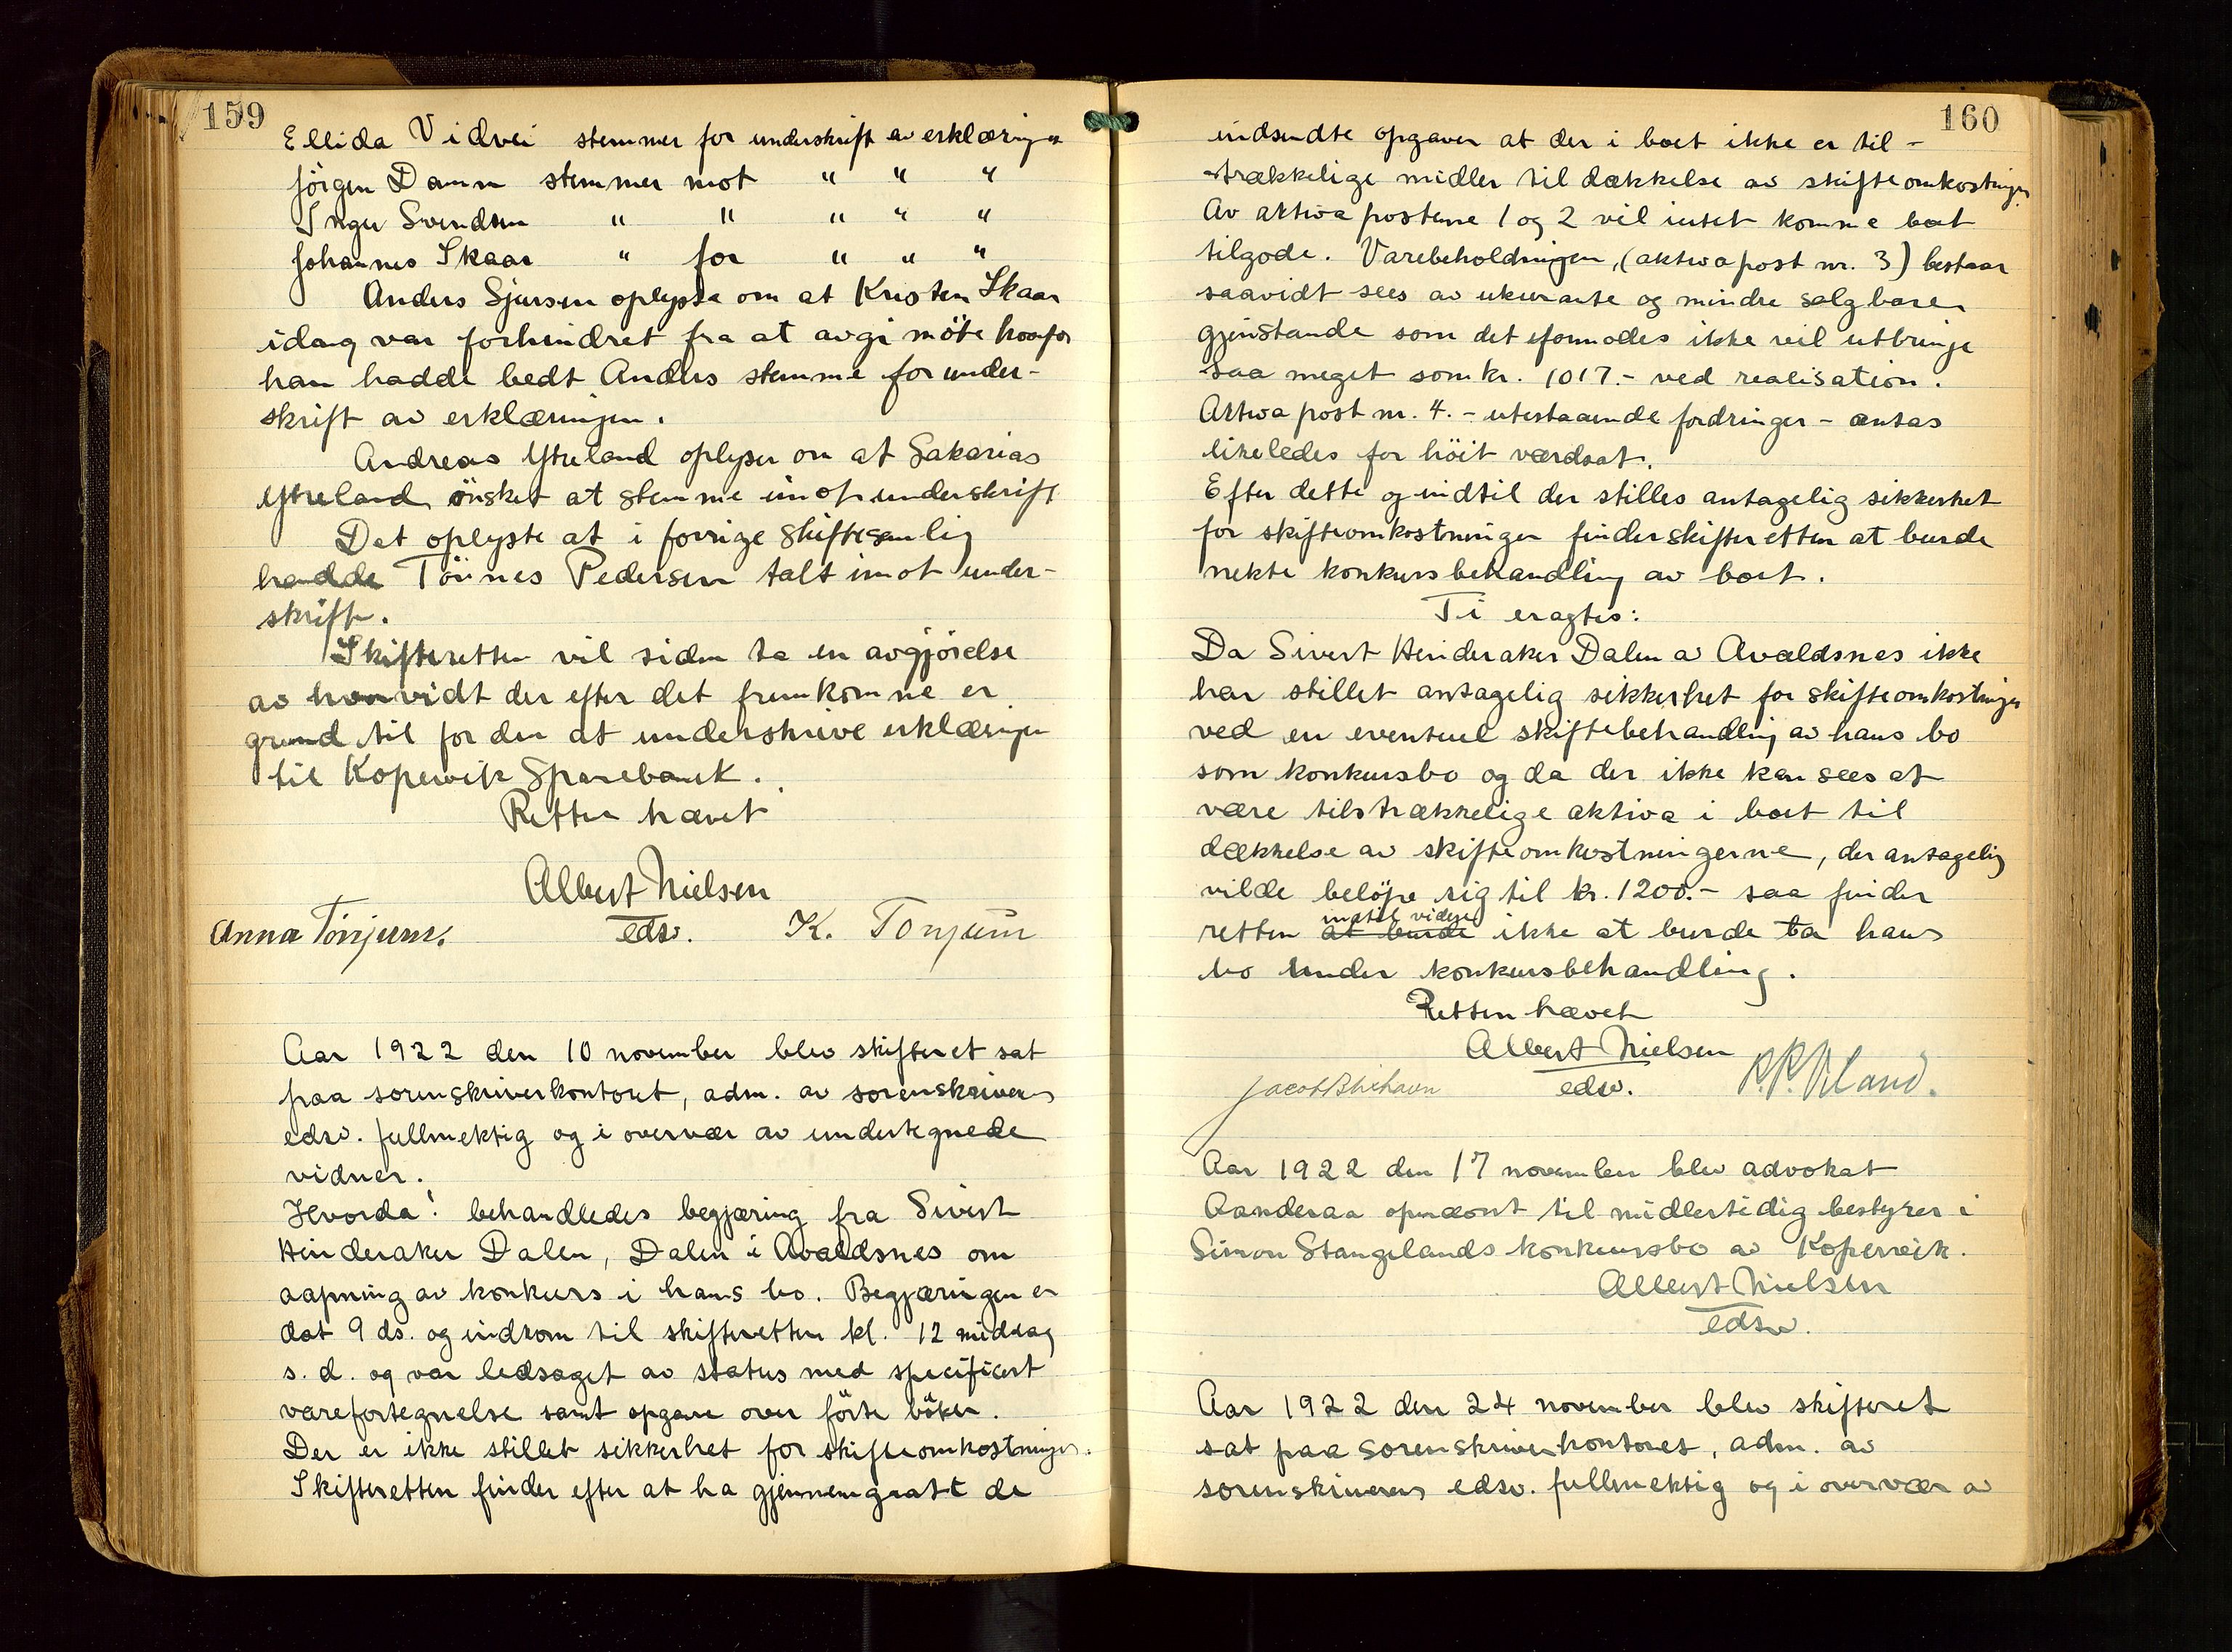 159
Ellida Vidvei stemmer for underskrift av erklæringen
Jörgen Damm stemmer mot " " "
Inger Svendsen " " " " "
Johannes Skaar " for " " "
Anders Sjursen oplyste om at Kristen Skaar
idag var forhindret fra at avgi möte hvorfor
han hadde bedt Anders stemme for under-
skrift av erklæringen.
Andreas Ytreland oplyser om at Sakarias
Ytreland önsket at stemme imot underskrift
Det oplyste at i forrige skiftesamling
hadde Tönnes Pedersen talt imot under-
skrift.
Skifteretten vil siden ta en avgjörelse
av hvorvidt der efter det fremkomne er
grund til for den at underskrive erklæringen
til Kopervik Sparebank.
Retten hævet
Albert Nielsen
Anna Tönjum. edsv. K. Tonjum
Aar 1922 den 10 november blev skifteret sat
paa sorenskriverkontoret, adm. av sorenskriverens
edsv. fullmektig og i overvær av undertegnede
vidner.
Hvorda: behandledes begjæring fra Sivert
Hinderaker Dalen, Dalen i Avaldsnes om
aapning av konkurs i hans bo. Begjæringen er
dat 9 ds. og indkom til skifteretten kl. 12 middag
s. d. og var ledsaget av status med specificert
varefortegnelse samt opgave over förte böker.
Der er ikke stillet sikkerhet for skifteomkostninger.
Skifteretten finder efter at ha gjennemgaat de
160
indsendte opgaver at der i boet ikke er til-
strækkelige midler til dækkelse av skifteomkostninger.
Av aktiva postene 1 og 2 vil intet komme boet
tilgode. Varebeholdningen, (aktiva post nr. 3) bestaar
saavidt sees av ukurante og mindre salgbare
gjenstande som det formodes ikke vil utbringe
saa meget som kr. 1017.- ved realisation.
Aktiva post nr. 4. - utestaaende fordringer - antas
likeledes for höit værdsat.
Efter dette og indtil der stilles antagelig sikkerhet
for skifteomkostninger finder skifteretten at burde
nekte konkursbehandling av boet.
Ti eragtes:
Da Sivert Hinderaker Dalen av Avaldsnes ikke
har stillet antagelig sikkerhet for skifteomkostninger
ved en eventuel skiftebehandling av hans bo
som konkursbo og da der ikke kan sees at
være tilstrækkelige aktiva i boet til
dækkelse av skifteomkostningerne, der antagelig
vilde belöpe sig til kr. 1200.- saa finder
indtil videre
retten at burde ikke at burde ta hans
bo under konkursbehandling.
Retten hævet
Albert Nielsen
Jacob edsv.
Aar 1922 den 17 november blev advokat
Aanderaa opnævnt til midlertidig bestyrer i
Simon Stangelands konkursbo av Kopervik.
Albert Nielsen
edsv.
Aar 1922 den 24 november blev skifteret
sat paa sorenskriverkontoret, adm. av
sorenskriverens edsv. fullmektig og i overvær av